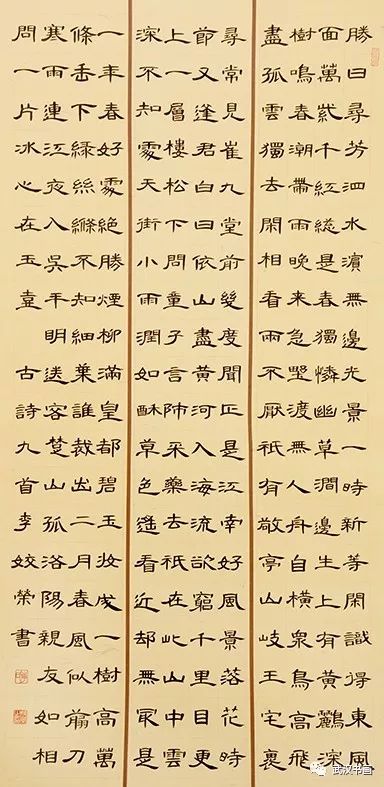 勝日尋芳泗水濱無邊光景一時新等閑識得東風
面萬紫千紅總是春獨憐幽草澗邊生上有黃鸝深
樹鳴春潮帶雨晚来急野渡無人舟自橫衆鳥高飛
盡孤雲獨去閑相看兩不厭祇有敬亭山岐王宅裏
尋常見崔九堂前幾度聞正是江南好風景落花時
節又逢君白日依山盡黃河入海流欲窮千里目更
上一層樓松下問童子言師采藥去祇在此山中雲
深不知處天街小雨潤如酥草色遥看近却無最是
一年春好處絕勝煙柳滿皇都碧玉妝成一樹高萬
條垂下綠絲絛不知細葉誰裁出二月春風似剪刀
寒雨連江夜入吳平明送客楚山孤洛陽親友如相
問一片冰心在玉壺 古詩九首李姣榮書
武汉书画